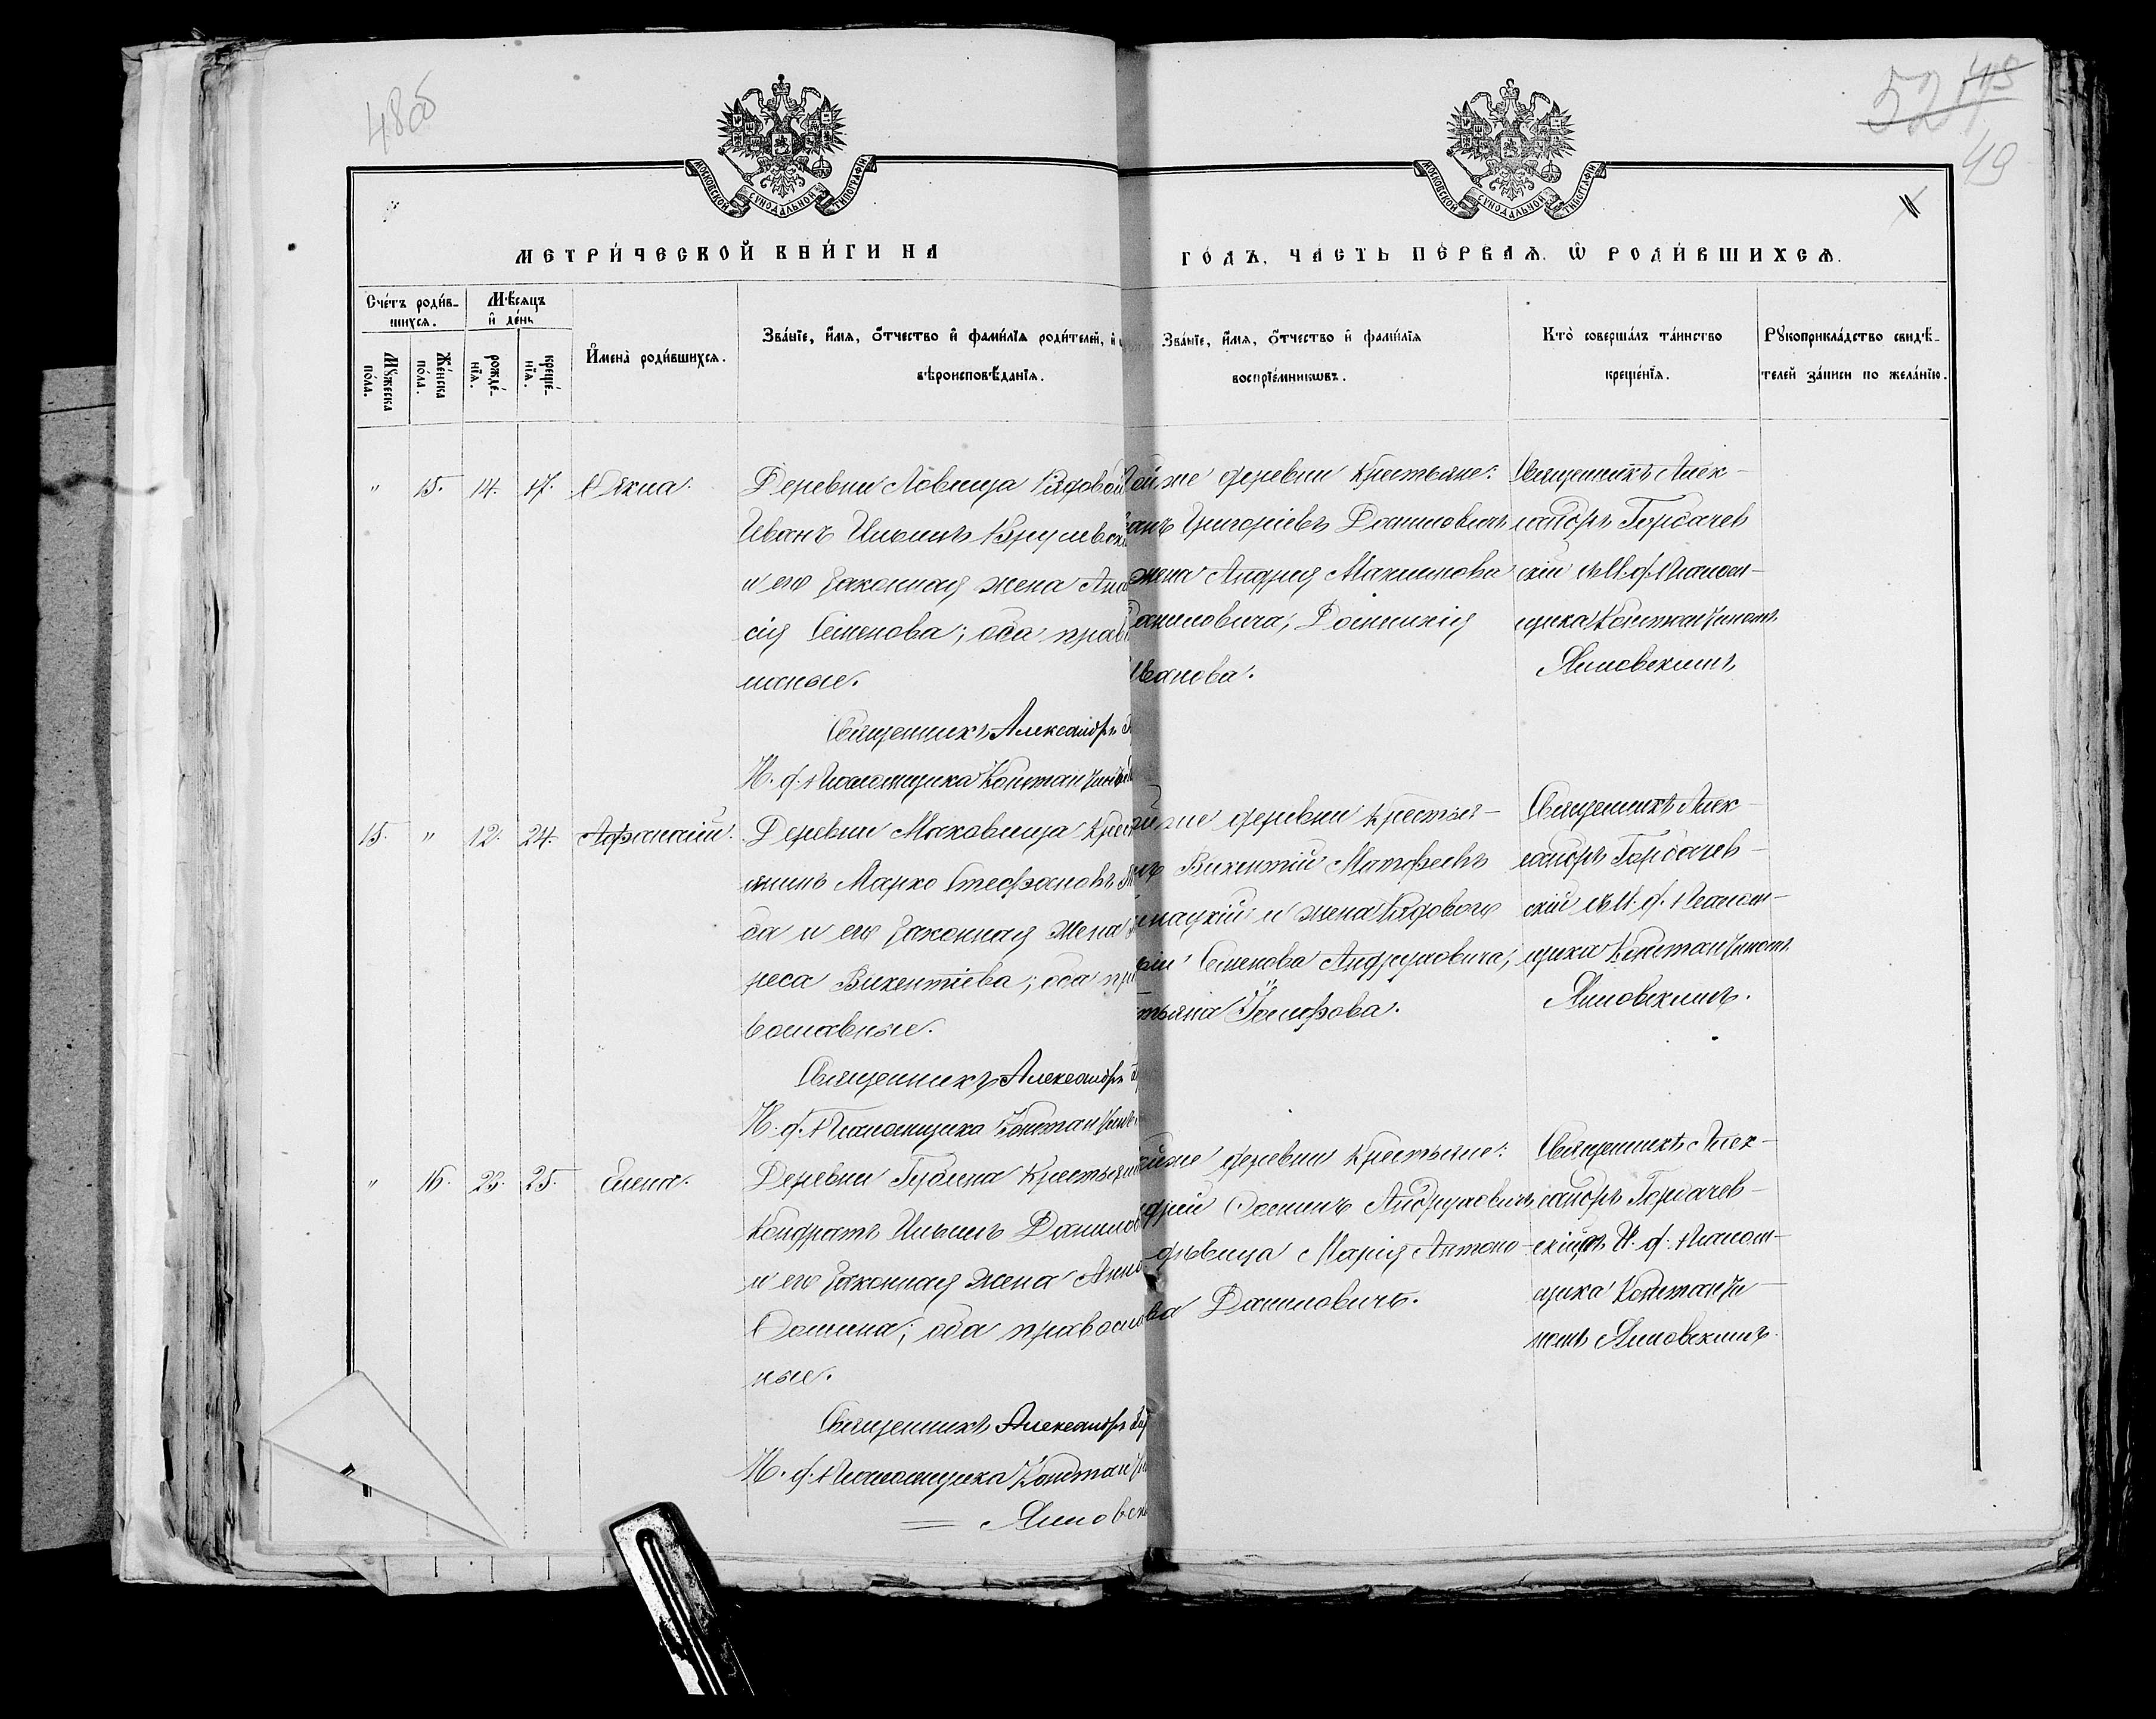 48об
52 48
49
МОСКОВСКОЙ СѴНОДАЛЬНОЙ ТИПОГРАФІИ
МОСКОВСКОЙ СѴНОДАЛЬНОЙ ТИПОГРАФІИ
МЕТРИ́ЧЕСКОЙ КНИ́ГИ НА
ГО́ДЪ, ЧА́СТЬ ПЕ́РВАѦ. Ѡ҆ РОДИ́ВШИХСѦ.
Сче́тъ роди́в-
шихсѧ.
Мѣ́сѧцъ
и҆ де́нь
Мꙋ́жеска
по́ла.
Же́нска
по́ла.
рожде́-
нїѧ.
креще́-
нїѧ.
И҆мена̀ роди́вшихсѧ.
Зва́нїе, и҆́мѧ, о҆́тчество и҆ фами́лїѧ роди́телей, и҆
вѣроисповѣ́данїѧ.
Зва́нїе, и҆́мѧ, о҆́тчество и҆ фами́лїѧ
воспрїе́мникѡвъ.
Кто̀ соверша́лъ та́инство
креще́нїѧ.
Рꙋкоприкла́дство свидѣ́-
телей за́писи по жела́нїю.
" 15. 14. 17.
Деревни Ловища Рядовой
Иванъ Ильинъ
и его законная жена Ана
сія Семенова; оба прав
славные.
Священникъ Александръ
И. д. Псаломщика Константинъ
ойже деревни Крестьяне:
анъ Григоріевъ Даниловичъ
жена Андрея Махимова
Даниловича, Домникія
Иванова.
Священникъ Алек-
сандръ Горбачев
скій съ И. д. Псалом-
щика Константиномъ
Ялиовскимъ
15. " 12. 24. Афанасій.
Деревни Маковища Крест
янинъ Марко Стефановъ
ба и его законная жена
реса Викентіева; оба пра
вославные.
Священникъ Александръ
И. д. Псаломщика Константинъ
ойже деревни Крестья-
нъ Викентій Матфеевъ
и жена Рядового
Семенова Андруховича,
тьяна Іосифова.
Священникъ Алек-
сандръ Горбачев-
скій съ И. д. Псалом-
щика Константиномъ
Ялиовскимъ.
" 16. 23. 25. Елена.
Деревни Крестьянин
Кондратъ Ильинъ Данилов
и его законная жена Анна
Осипина; оба православ
ные.
Священникъ Александръ Гор
И. д. Псаломщика Константин
Ялиовск
ойже деревни Крестьяне:
дрей Осипинъ Андруховичъ
дѣвица Марія Антоно-
ва Даниловичъ.
Священникъ Алек-
сандръ Горбачев-
скій съ И. д. Псалом-
щика Константи
номъ Ялиовскимъ.